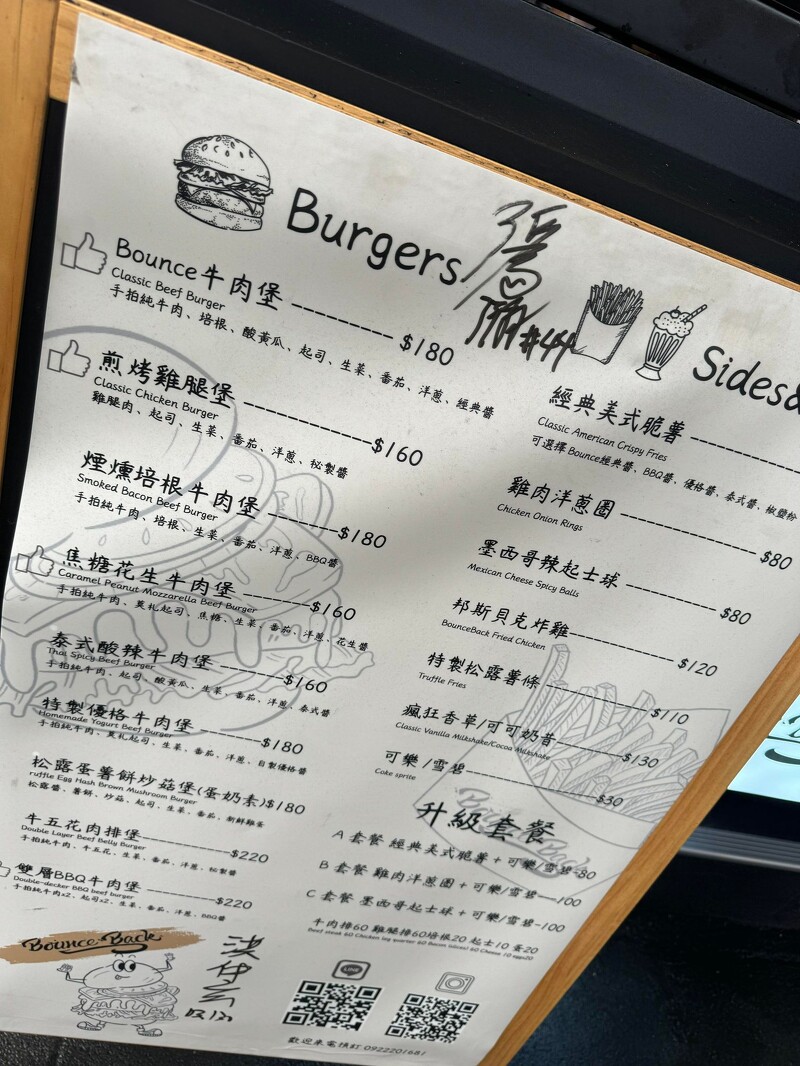 Burgers
Bounce牛肉堡 $180
Classic Beef Burger
手拍純牛肉、培根、酸黃瓜、起司、生菜、番茄、洋蔥、經典醬
煎烤雞腿堡 $160
Classic Chicken Burger
雞腿肉、起司、生菜、番茄、洋蔥、秘製醬
煙燻培根牛肉堡 $180
Smoked Bacon Beef Burger
手拍純牛肉、培根、生菜、番茄、洋蔥、BBQ醬
焦糖花生牛肉堡 $160
Caramel Peanut Mozzarella Beef Burger
手拍純牛肉、莫札起司、焦糖、生菜、番茄、洋蔥、花生醬
泰式酸辣牛肉堡 $160
Thai Spicy Beef Burger
手拍純牛肉、起司、酸黃瓜、生菜、番茄、洋蔥、泰式醬
特製優格牛肉堡 $180
Homemade Yogurt Beef Burger
手拍純牛肉、莫札起司、生菜、番茄、洋蔥、自製優格醬
松露蛋薯餅炒菇堡(蛋奶素) $180
ruffle Egg Hash Brown Mushroom Burger
松露醬、薯餅、炒菇、起司、生菜、番茄、新鮮雞蛋
牛五花肉排堡 $220
Double Layer Beef Belly Burger
手拍純牛肉、牛五花、生菜、番茄、洋蔥、秘製醬
雙層BBQ牛肉堡 $220
Double-decker BBQ beef burger
手拍純牛肉x2、起司x2、生菜、番茄、洋蔥、BBQ醬
Bounce Back
#44
Sides&
經典美式脆薯
Classic American Crispy Fries
可選擇 Bounce經典醬、BBQ醬、優格醬、泰式醬、椒鹽粉
雞肉洋蔥圈 $80
Chicken Onion Rings
墨西哥辣起士球 $80
Mexican Cheese Spicy Balls
邦斯貝克炸雞 $120
BounceBack Fried Chicken
特製松露薯條 $110
Truffle Fries
瘋狂香草/可可奶昔 $130
Classic Vanilla Milkshake/Cocoa Milkshake
可樂 /雪碧 $30
Coke sprite
升級套餐
A 套餐 經典美式脆薯 + 可樂/雪碧 80
B 套餐 雞肉洋蔥圈 + 可樂/雪碧 100
C 套餐 墨西哥起士球 + 可樂/雪碧 100
牛肉排60 雞腿排60培根20 起士10 蛋20
Beef steak 60 Chicken leg quarter 60 Bacon slices) 60 Cheese 10 eggs20
LINE
歡迎來電預訂 0922201681